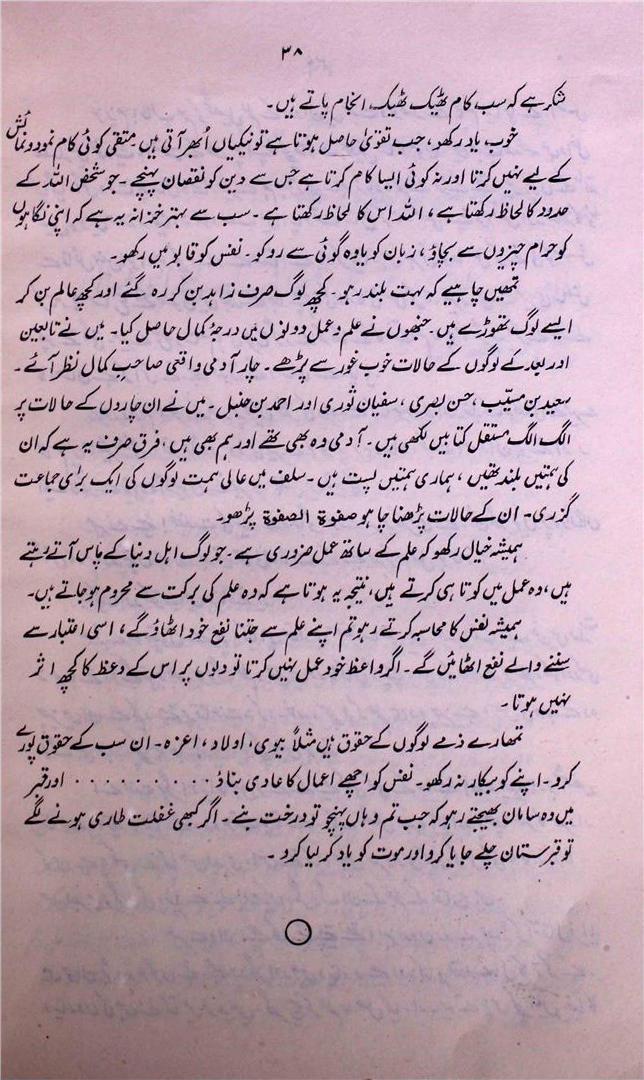 ۳۸
شکر ہے کہ سب کام ٹھیک ٹھیک انجام پاتے ہیں۔
خوب یاد رکھو، جب تقویٰ حاصل ہوتا ہے تو نیکیاں اُبھر آتی ہیں۔ متقی کوئی کام نمود و نمائش
کے لیے نہیں کرتا اور نہ کوئی ایسا کام کرتا ہے جس سے دین کو نقصان پہنچے۔ جو شخص اللہ کے
حدود کا لحاظ رکھتا ہے، اللہ اس کا لحاظ رکھتا ہے۔ سب سے بہتر خزانہ یہ ہے کہ اپنی نگاہوں
کو حرام چیزوں سے بچاؤ، زبان کو یاوہ گوئی سے روکو۔ نفس کو قابو میں رکھو۔
تمھیں چاہیے کہ بہت بلند رہو۔ کچھ لوگ صرف زاہد بن کر رہ گئے اور کچھ عالم بن کر
ایسے لوگ تھوڑے ہیں جنھوں نے علم و عمل دونوں میں درجۂ کمال حاصل کیا۔ میں نے تابعین
اور بعد کے لوگوں کے حالات خوب غور سے پڑھے۔ چار آدمی واقعی صاحب کمال نظر آئے۔
سعید بن مسیّب، حسن بصری، سفیان ثوری اور احمد بن حنبل۔ میں نے ان چاروں کے حالات پر
الگ الگ مستقل کتابیں لکھی ہیں۔ آدمی وہ بھی تھے اور ہم بھی ہیں، فرق صرف یہ ہے کہ ان
کی ہمتیں بلند تھیں، ہماری ہمتیں پست ہیں۔ سلف میں عالی ہمت لوگوں کی ایک بڑی جماعت
گزری۔ ان کے حالات پڑھنا چاہو صفوۃ الصفوۃ پڑھو۔
ہمیشہ خیال رکھو کہ علم کے ساتھ عمل ضروری ہے۔ جو لوگ اہل دنیا کے پاس آتے رہتے
ہیں، وہ عمل میں کوتاہی کرتے ہیں، نتیجہ یہ ہوتا ہے کہ وہ علم کی برکت سے محروم ہو جاتے ہیں۔
ہمیشہ نفس کا محاسبہ کرتے رہو تم اپنے علم سے جتنا نفع خود اٹھاؤ گے، اسی اعتبار سے
سننے والے نفع اٹھائیں گے۔ اگر واعظ خود عمل نہیں کرتا تو دلوں پر اس کے وعظ کا کچھ اثر
نہیں ہوتا۔
تمھارے ذمے لوگوں کے حقوق ہیں مثلاً بیوی، اولاد، اعزہ۔ ان سب کے حقوق پورے
کرو۔ اپنے کو بیکار نہ رکھو۔ نفس کو اچھے اعمال کا عادی بناؤ ۔ ۔ ۔ ۔ ۔ ۔ ۔ ۔ ۔ ۔ اور قبر
میں وہ سامان بھیجتے رہو کہ جب تم وہاں پہنچو تو درخت بنے۔ اگر کبھی غفلت طاری ہونے لگے
تو قبرستان چلے جایا کرو اور موت کو یاد کر لیا کرو۔